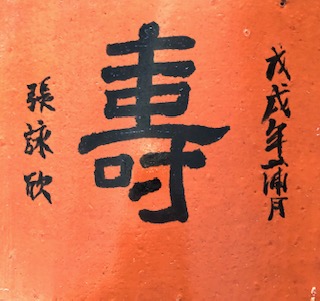 戊戌年蒲月
壽
張詠欣